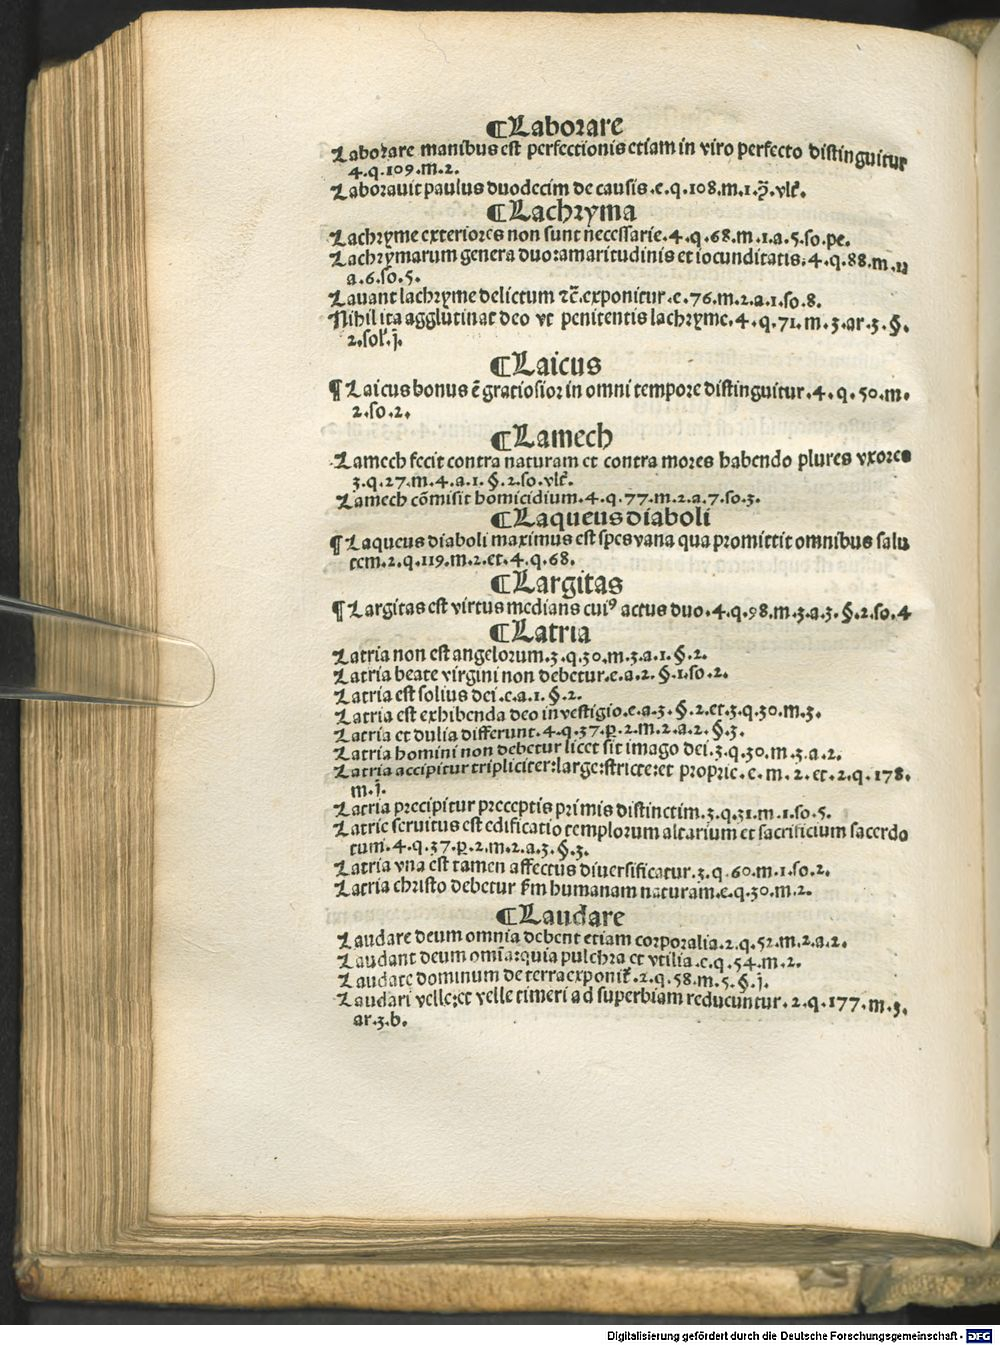 ¶Laborare
Laborare manibus est perfectionis etiam in viro perfecto distinguitur
4.q.109.m.2.
Laboravit paulus duodecim de causis.e.q.108.m.1.
¶Lachryma
Lachryme exteriores non sunt necessarie.4.q.68.m.1.a.5.so.pe.
Lachrymarum genera duo:amaritudinis et iocunditatis.4.q.88.m.
a.6.so.5.
Lavant lachryme delictum ⁊c̄.exponitur.e.76.m.2.a.1.so.8.
Nihil ita agglutinat deo vt penitentis lachryme.4.q.71.m.3.ar.3.§.
2.sol'.j.
¶Laicus
¶Laicus bonus ē gratiosior in omni tempore distinguitur.4.q.50.m.
2.so.2.
¶Lamech
Lamech fecit contra naturam et contra mores habendo plures vxores
3.q.27.m.4.a.1.§.2.so.vlt̄.
Lamech cōmisit homicidium.4.q.77.m.2.a.7.so.3.
¶Laqueus diaboli
¶Laqueus diaboli maximus est spes vana qua promittit omnibus salu
tem.2.q.119.m.2.et.4.q.68.
¶Largitas
¶Largitas est virtus medians cuiꝰ actus duo.4.q.98.m.3.a.3.§.2.so.4
¶Latria
Latria non est angelorum.3.q.30.m.3.a.1.§.2.
Latria beate virgini non debetur.e.a.2.§.1.so.2.
Latria est solius dei.e.a.1.§.2.
Latria est exhibenda deo in vestigio.e.a.3.§.2.et.3.q.30.m.3.
Latria et dulia differunt.4.q.37.p̄.2.m.2.a.2.§.3.
Latria homini non debetur licet sit imago dei.3.q.30.m.3.a.2.
Latria accipitur tripliciter:large:stricte:et proprie.e.m.2.et.2.q.178.
m.j.
Latria precipitur preceptis primis distinctim.3.q.31.m.1.so.5.
Latrie servitus est edificatio templorum altarium et sacrificium sacerdo
tum.4.q.37.p̄.2.m.2.a.3.§.3.
Latria vna est tamen affectus diversificatur.3.q.60.m.1.so.2.
Latria christo debetur fm humanam naturam.e.q.30.m.2.
¶Laudare
Laudare deum omnia debent etiam corporalia.2.q.52.m.2.a.2.
Laudant deum omīa:quia pulchra et vtilia.e.q.54.m.2.
Laudate dominum de terra exponit̄.2.q.58.m.5.§.j.
Laudari velle:et velle timeri ad superbiam reducuntur.2.q.177.m.3.
ar.3.b.
Digitalisierung gefördert durch die Deutsche Forschungsgemeinschaft - DFG